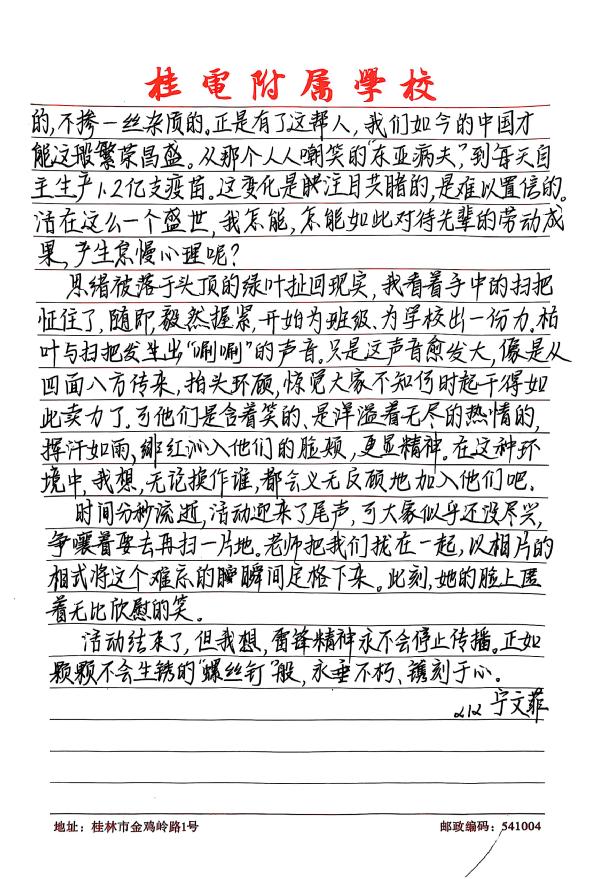 桂電附属學校
的,不掺一丝杂质的。正是有了这帮人,我们如今的中国才
能这般繁荣昌盛。从那个人人嘲笑的“东亚病夫”,到每天自
主生产1.2亿支疫苗。这变化是映注目共睹的,是难以置信的。
活在这么一个盛世,我怎能,怎能如此对待先辈的劳动成
果,产生怠慢心理呢?
思绪被落于头顶的绿叶扯回现实,我看着手中的扫把
怔住了,随即,毅然握紧,开始为班级、为学校出一份力。柏
叶与扫把发生出“唰唰”的声音。只是这声音愈发大,像是从
四面八方传来,抬头环顾,惊觉大家不知何时起干得如
此卖力了。可他们是含着笑的、是洋溢着无尽的热情的,
挥汗如雨,绯红沁入他们的脸颊,更显精神。在这种环
境中,我想,无论换作谁,都会义无反顾地加入他们吧。
时间分秒流逝,活动迎来了尾声,可大家似乎还没尽兴,
争嚷着要去再扫一片地。老师把我们拢在一起,以相片的
相式将这个难忘的瞬间定格下来。此刻,她的脸上匿
着无比欣慰的笑。
活动结束了,但我想,雷锋精神永不会停止传播。正如
颗颗不会生锈的“螺丝钉”般,永垂不朽、镌刻于心。
212 宁文菲
地址:桂林市金鸡岭路1号 邮政编码:541004